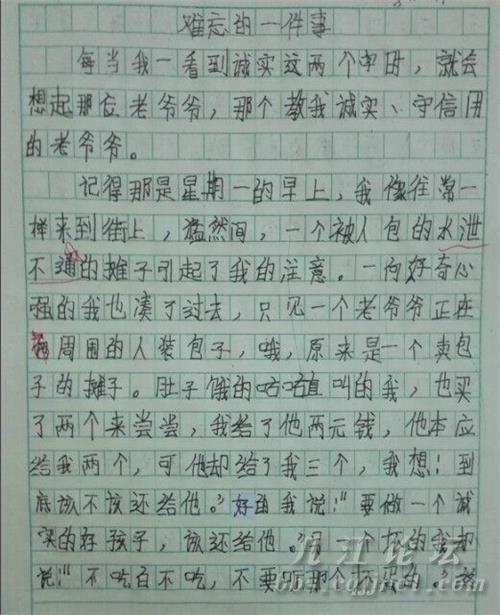 难忘的一件事
每当我一看到诚实这两个字时，就会
想起那位老爷爷，那个教我诚实、守信用
的老爷爷。
记得那是星期一的早上，我像往常一
样来到街上，猛然间，一个被人包的水泄
不通的摊子引起了我的注意。一向好奇心
强的我也凑了过去，只见一个老爷爷正在
周围的人装包子，哦，原来是一个卖包
子的摊子。肚子饿的咕咕直叫的我，也买
了两个来尝尝，我给了他两元钱，他本应
给我两个，可他却给了我三个，我想：到
底该不该还给他。”好的我说：“要做一个诚
实的好孩子，该还给他。”另一个坏的我却
说：“不吃白不吃，不要
九江论坛
bbs.cqjjnet.com